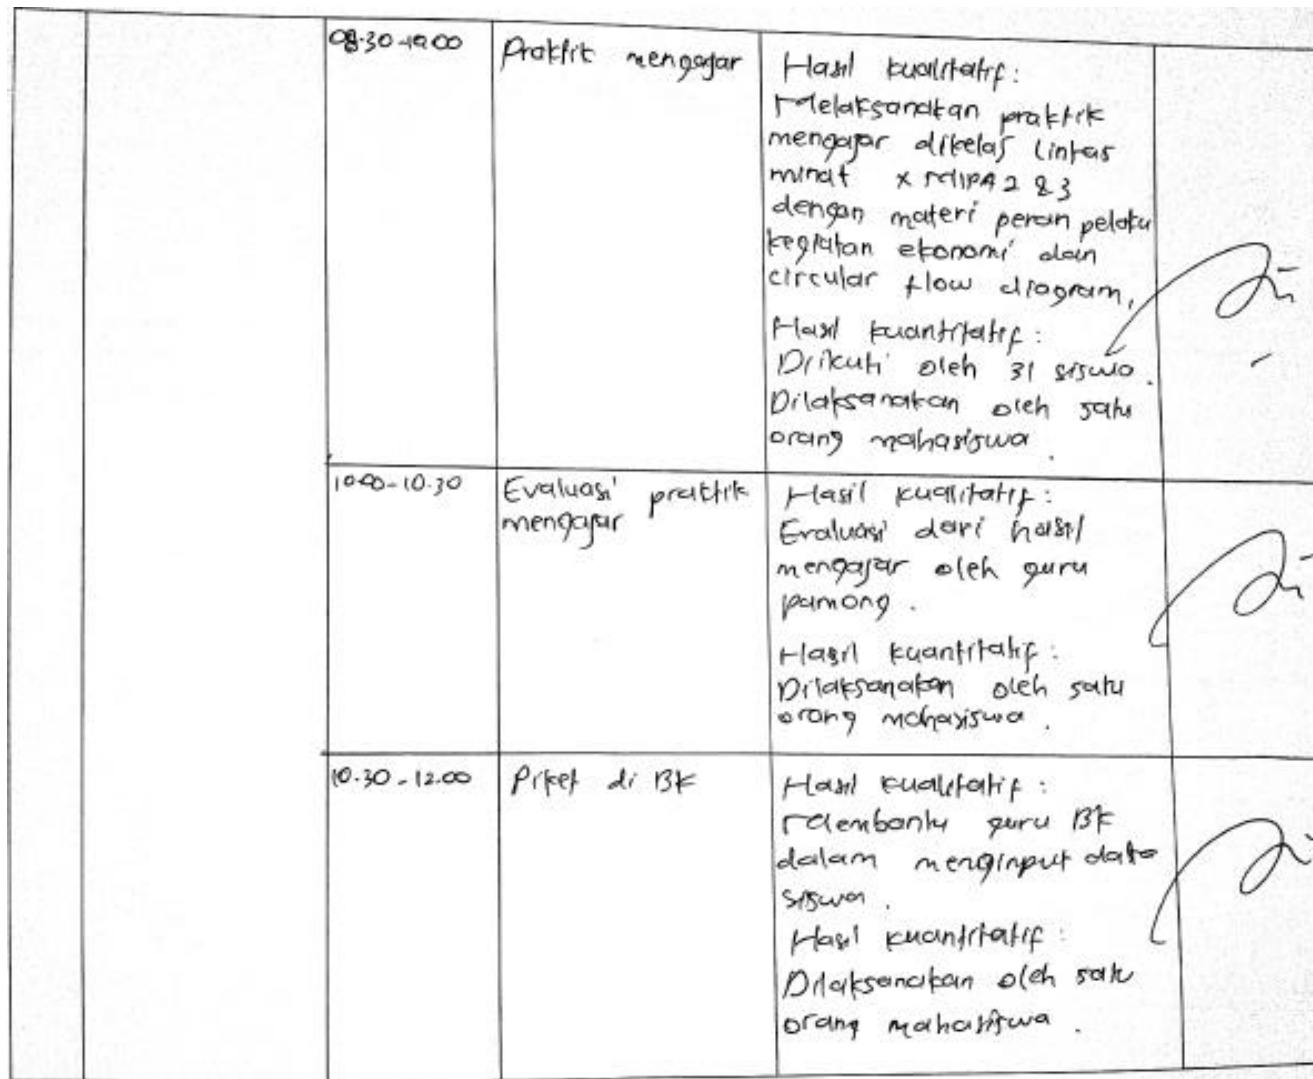 08.30-10.00
Praktik mengajar
Hasil kualitatif :
Melaksanakan praktik
mengajar dikelas lintas
minat X MIPA 2 & 3
dengan materi peran pelaku
kegiatan ekonomi dan
circular flow diagram,
Hasil kuantitatif :
Diikuti oleh 31 siswa.
Dilaksanakan oleh satu
orang mahasiswa.
10.00-10.30
Evaluasi praktik
mengajar
Hasil kualitatif :
Evaluasi dari hasil
mengajar oleh guru
pamong.
Hasil kuantitatif :
Dilaksanakan oleh satu
orang mahasiswa.
10.30-12.00
Piket di BK
Hasil kualitatif :
Membantu guru BK
dalam menginput data
siswa.
Hasil kuantitatif :
Dilaksanakan oleh satu
orang mahasiswa.